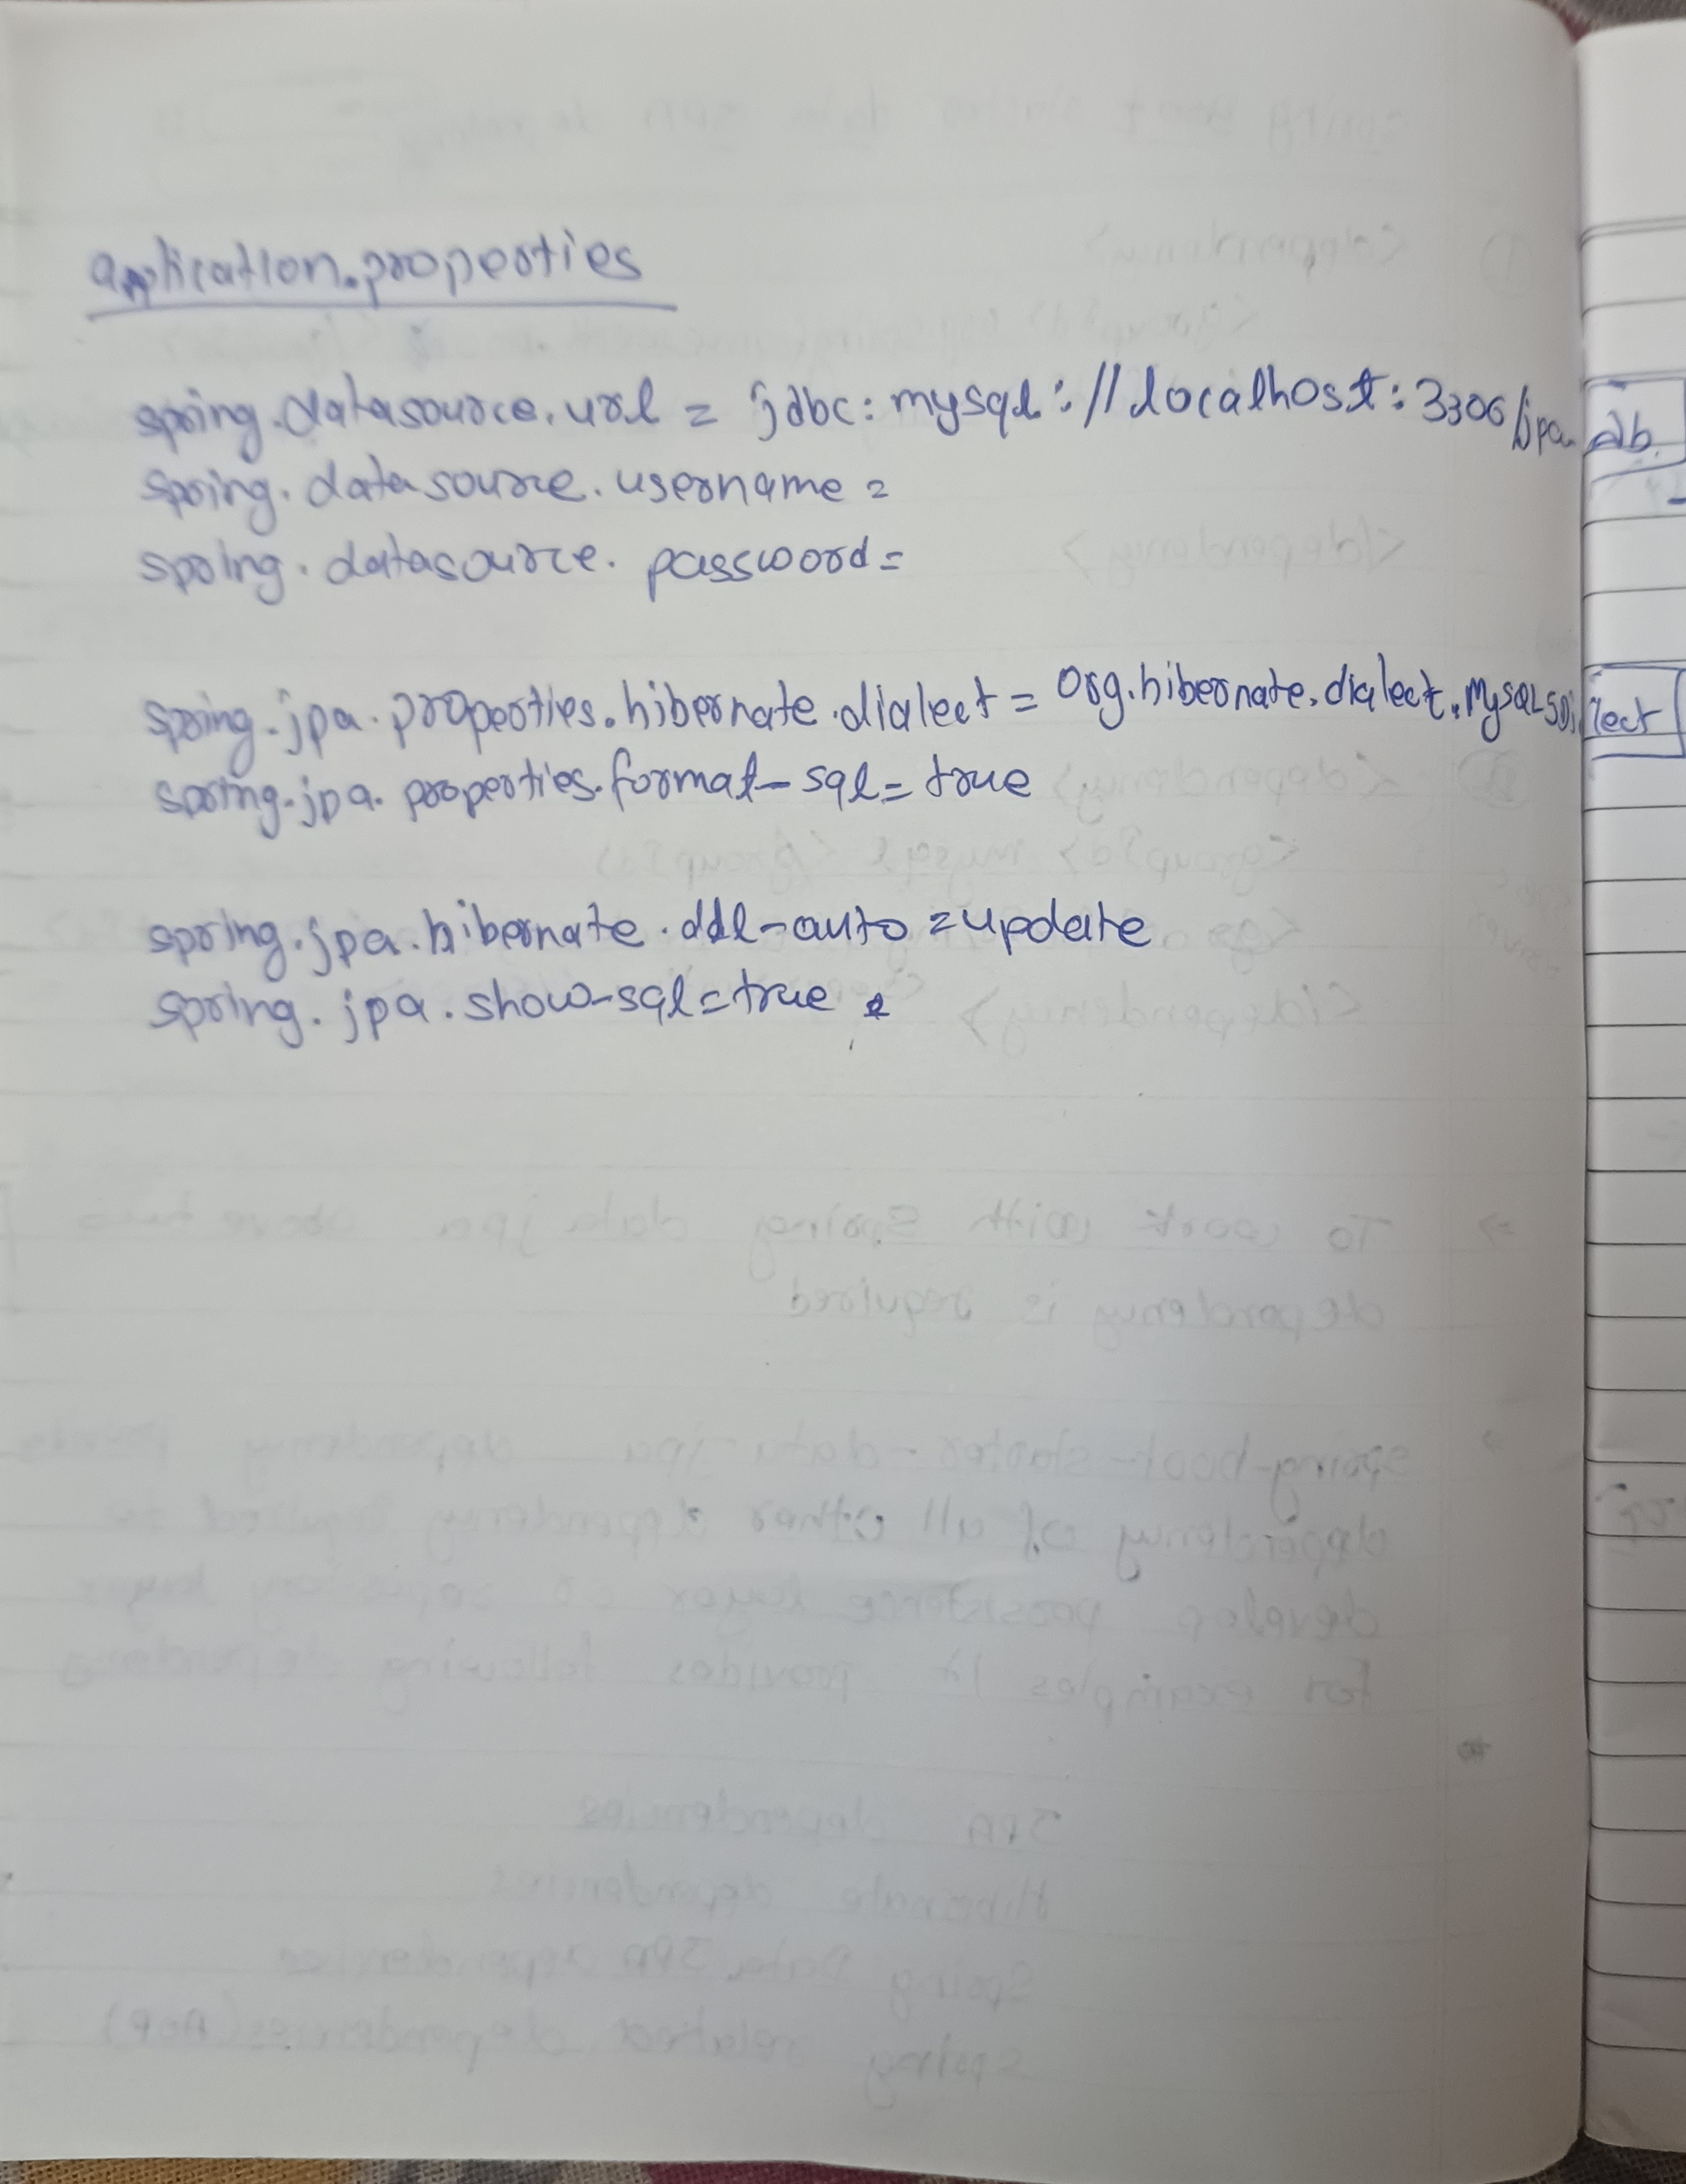 application.properties
spring.datasource.url = jdbc:mysql://localhost:3306/jpa db
spring.datasource.username =
spring.datasource.password=
spring.jpa.properties.hibernate.dialect = org.hibernate.dialect.MySQL5Dialect
spring.jpa.properties.format-sql= true
spring.jpa.hibernate.ddl-auto = update
spring.jpa.show-sql=true